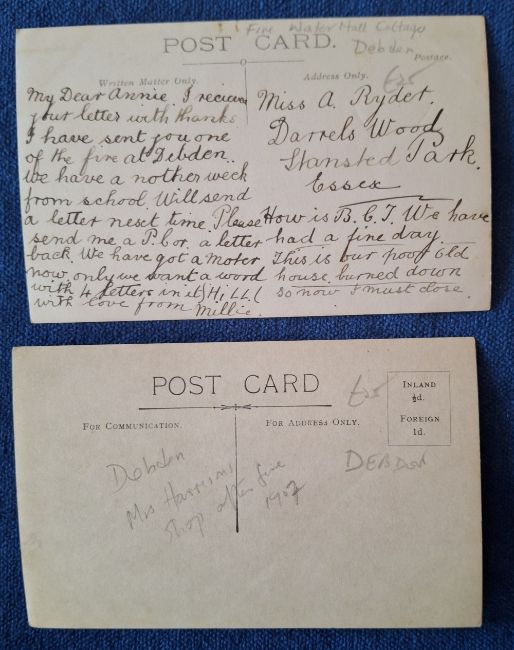 Fire Water Hall Cottage
Debden
POST CARD.
Postage.
£25
Written Matter Only.
Address Only.
My Dear Annie. I recieved
your letter with thanks
I have sent you one
of the fire at Debden.
We have a nother week
from school. Will send
a letter nesct time. Please
send me a P.C or. a letter
back. We have got a moter
now. only we want a word
with 4 letters in it (HiLL(
with love from Millie.
Miss A. Ryder.
Darrels Wood
Stansted Park.
Essex
How is B.C.T. We have
had a fine day.
This is our poor old
house burned down
so now I must close.
POST CARD
£25
INLAND
½d.
FOREIGN
1d.
FOR COMMUNICATION.
FOR ADDRESS ONLY.
Debden
Mrs Harrisons
Shop after fire
1907
DEBDEN